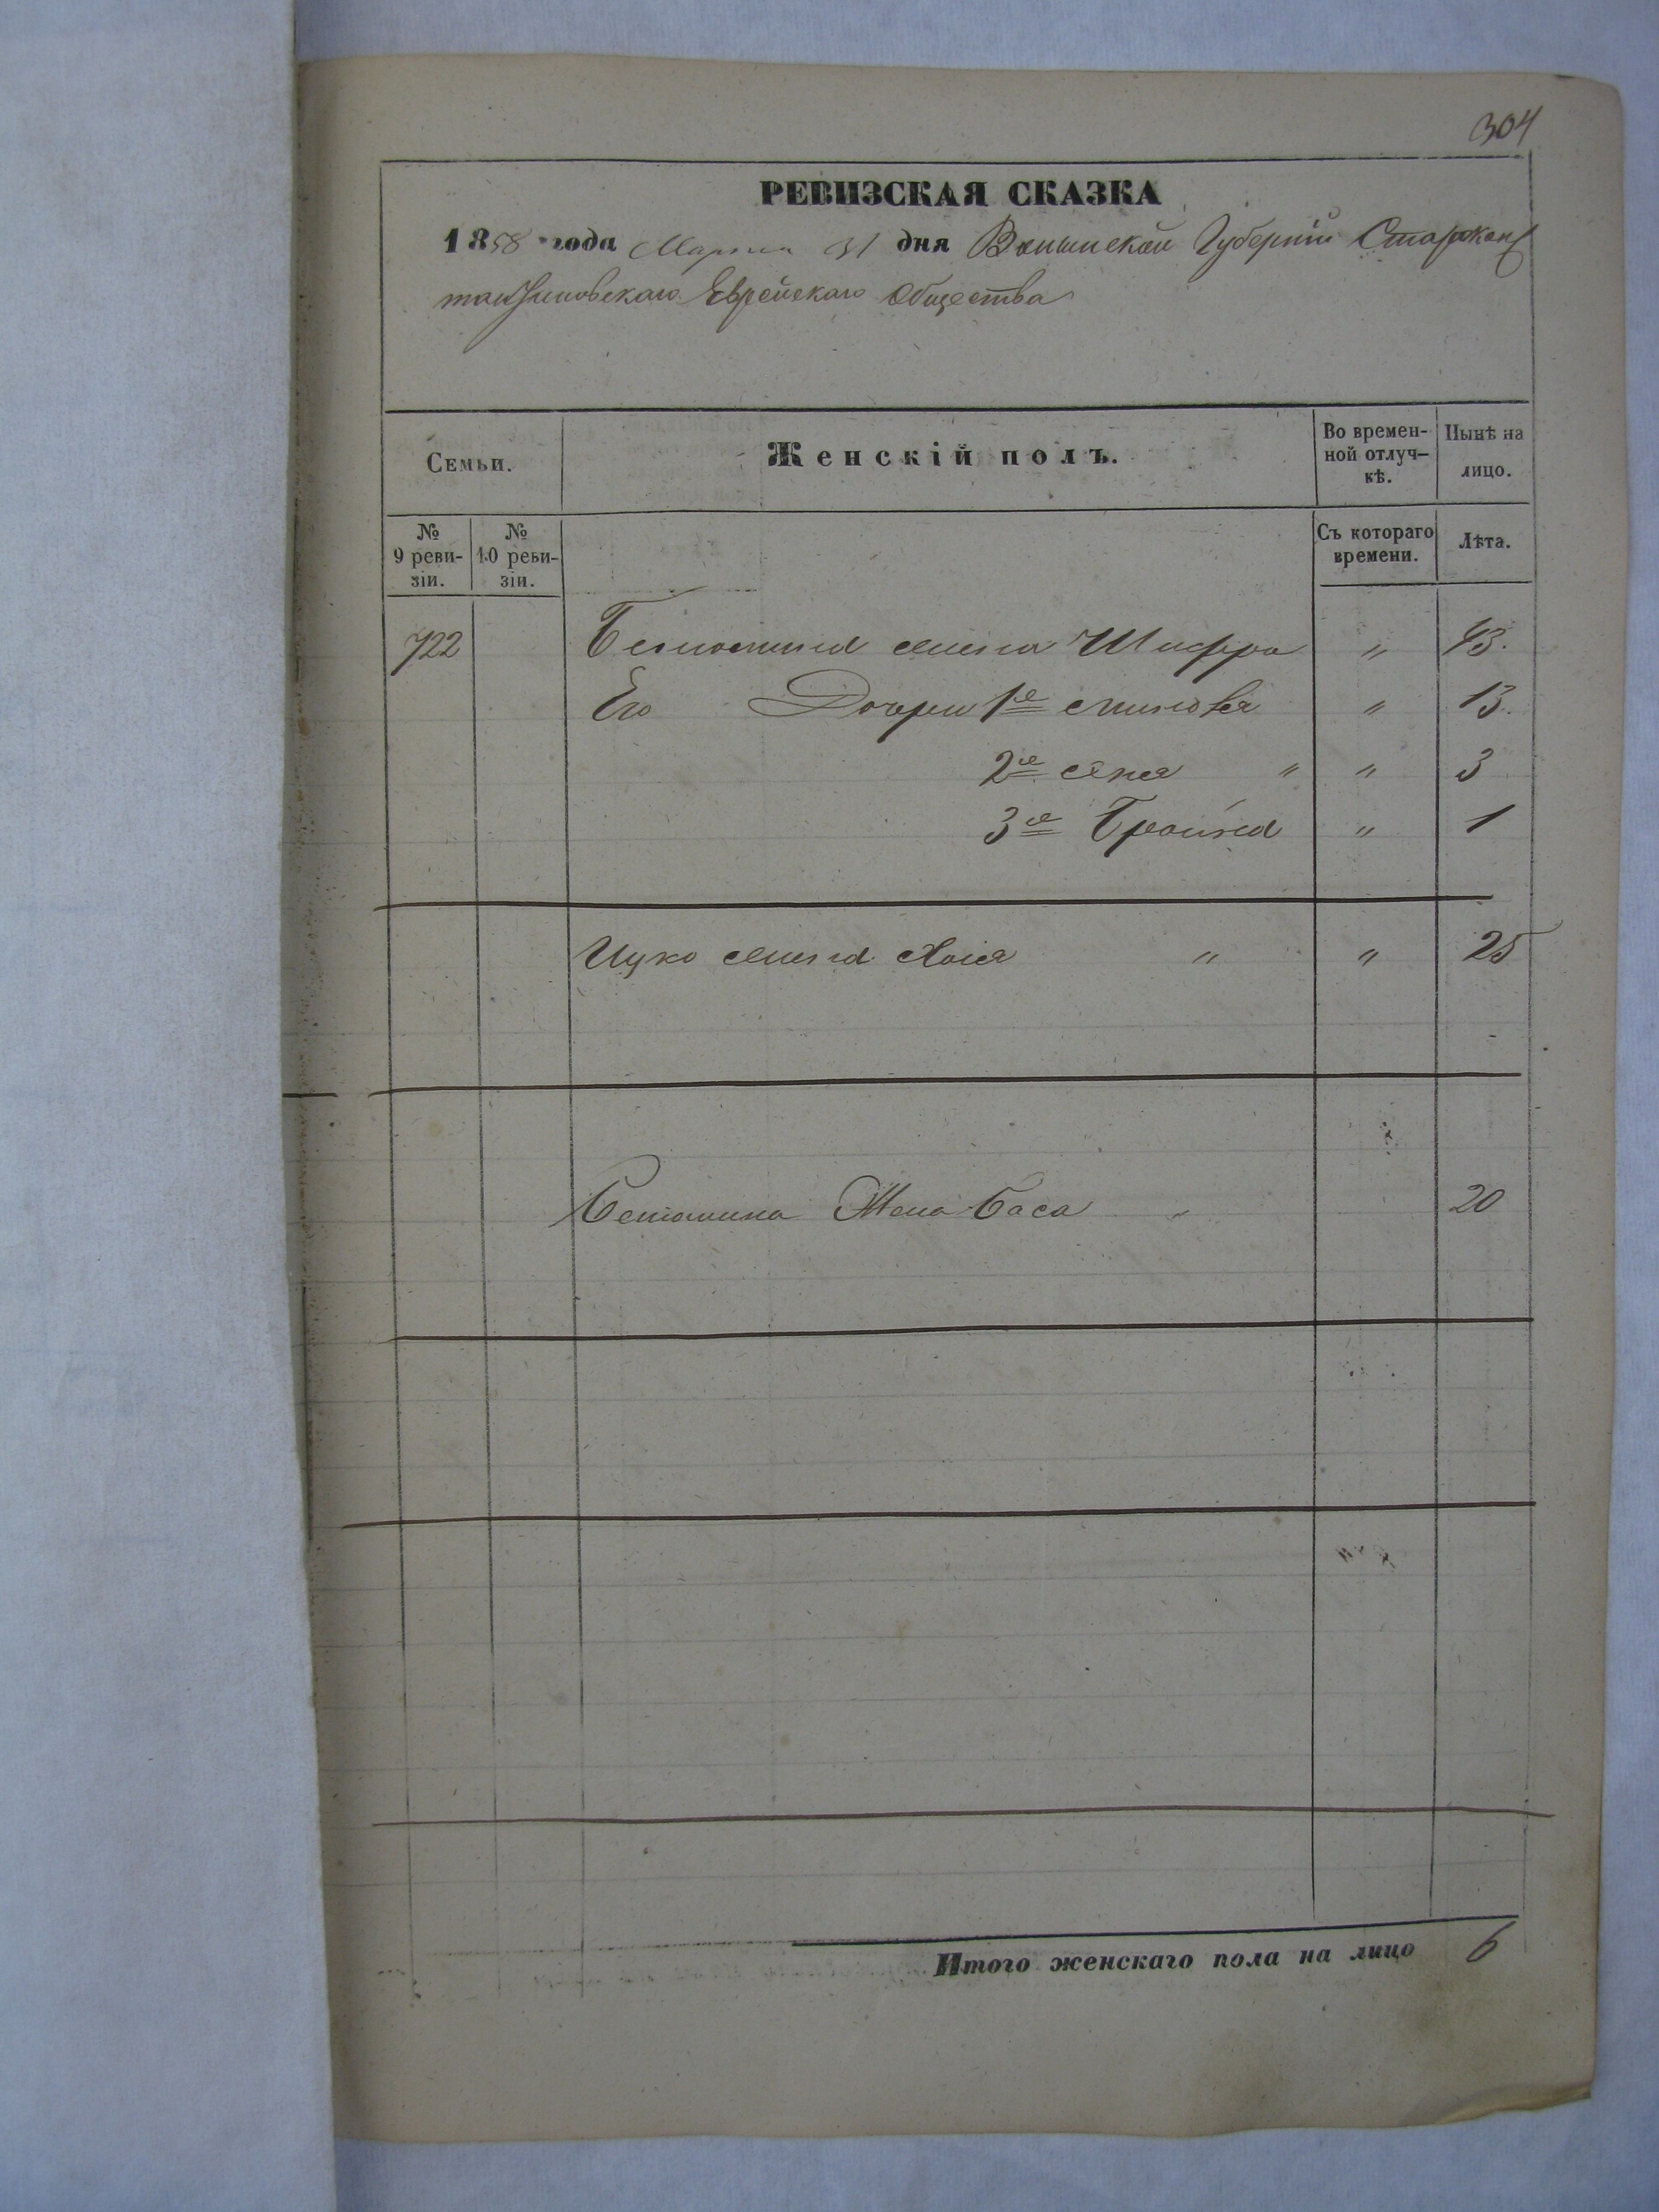 304
РЕВИЗСКАЯ СКАЗКА
1858 года Марта 31 дня Волынской Губернии Старокон
тантиновскаго Еврейскаго Общества
Семьи.
Женскій полъ.
Во времен-
ной отлуч-
кѣ.
Нынѣ на
лицо.
№
9 реви-
зіи.
№
10 реви-
зіи.
Съ котораго
времени.
Лѣта.
722 жена Шифра " 43.
Его Дочери 1я " 13.
2я " " 3
3я Брайна " 1
Ицко жена Хая " " 25
Жена Бася " 20
Итого женскаго пола на лицо 6